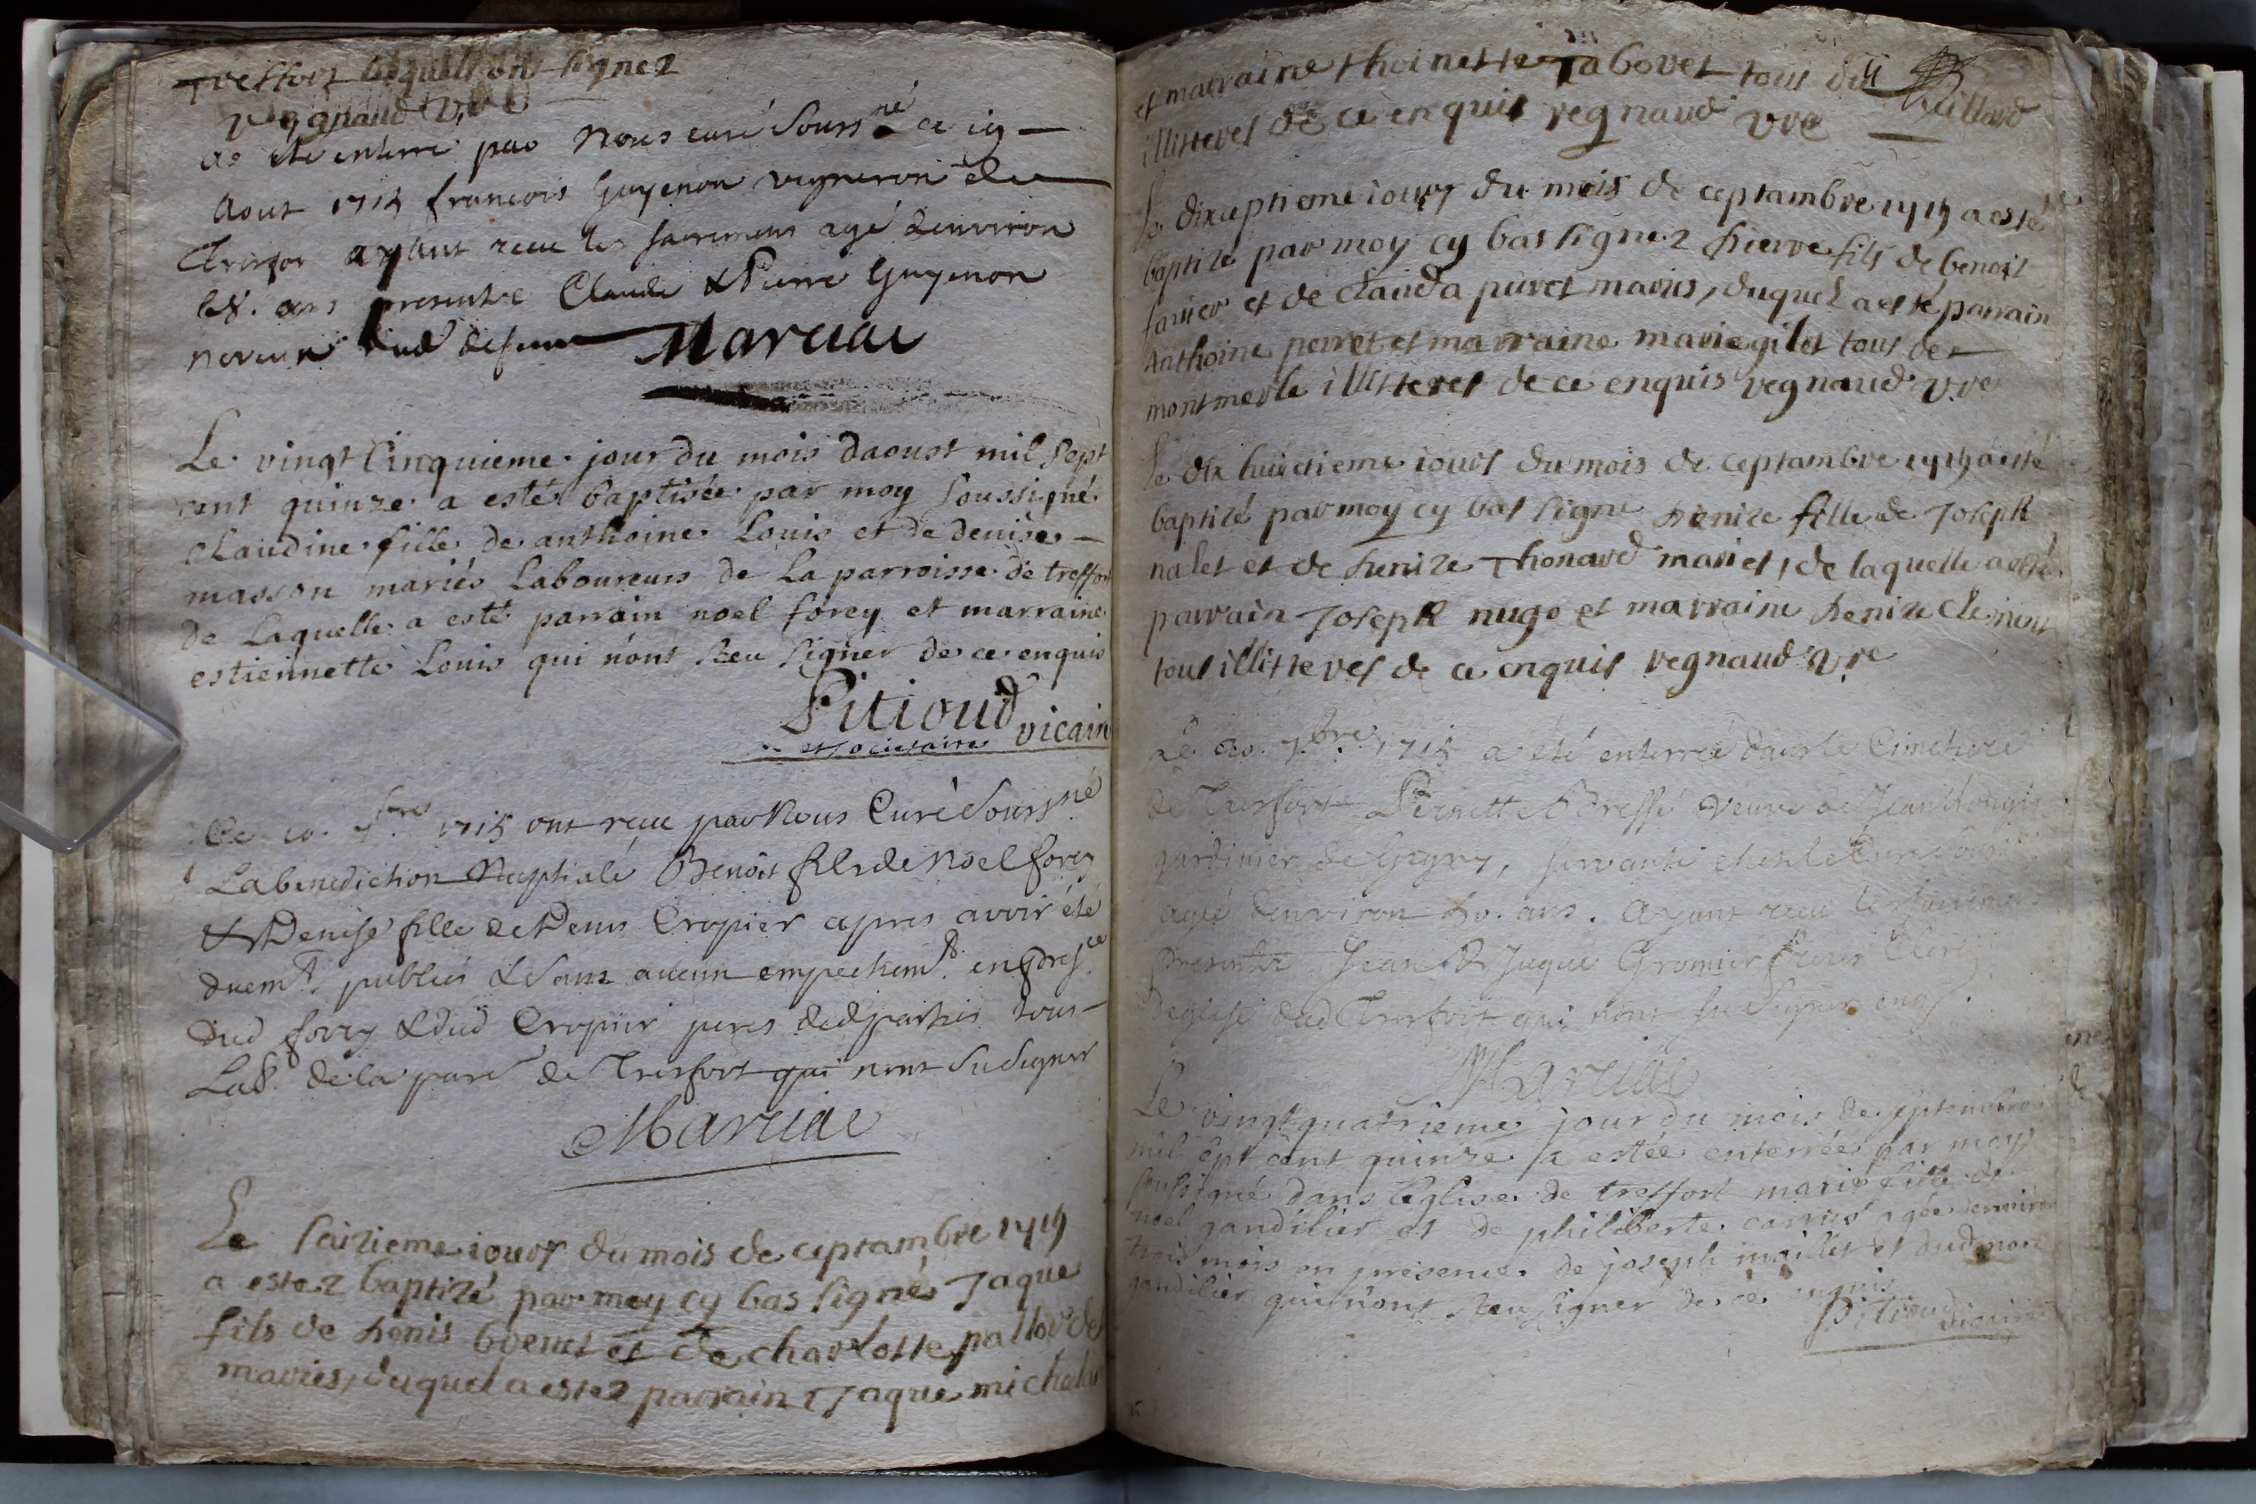 Treffort lesquels ont signez
regnaud vre
as eté enterré par Nous curé Soussné ce 19
Aout 1715 francois Guyenon vigneron de
Tresfor ayant receu les sacremens agé denviron
ans presents Claude & Pierre Guyenon
neveux dud defunt Marciac
Le vingt Cinquieme jour du mois daoust mil Sept
cent quinze a esté baptisée par moy Soussigné
claudine fille de anthoine Louis et de denise
masson mariés Laboureurs de La parroisse de treffort
de Laquelle a esté parrain noel forey et marraine
estiennette Louis qui n'ont sceu signer de ce enquis
Pitioud vicaire
et sociétaire
Ce 10. 7bre 1715 ont receu par Nous Curé Soussné
La benediction Nuptiale Benoit fils de Noel forey
& Denise fille de Denis Cropier apres avoir été
duemt. publiés & sans aucun empechemt. en presce
dud forey & dud Cropier peres desd parties tous
Lab. de la parre de Tresfort qui nont Su Signer
Marciac
Le saizieme iour du mois de ceptambre 1715
a estez baptizé par moy cy bas signé Jaque
fils de denis brenet et de charlotte pallordet
maries, duquel a estez parrain Jaque michalet
et marraine thoinette Jabovet tous deu
illitteres de ce enquis regnaud vre
Le dixceptieme iour du mois de ceptambre 1715 a esté
baptizé par moy cy bas signez pierre fils de benoit
favier et de clauda puret maries, duquel a esté parrain
Anthoine perret et marraine marie gilet tous de
montmerle illitteres de ce enquis regnaud vre
Le dix huictieme iour du mois de ceptambre 1715 a esté
baptizé par moy cy bas signe denize fille de Joseph
nalet et de denize Thonard maries, de laquelle a esté
parrain Joseph nugo et marraine denize clement
tous illitteres de ce enquis regnaud vre
Le 20. 7bre. 1715 a été enterrée dans le Cimetiere
de Tresfort Pernette Bressé veuve de Jean
jardinier de Gigny, servante chez le Curé
agée denviron ans. Ayant receu les sacremens
presents Jean & Jaque Gromier freres Clers
deglise dud Tresfort qui nont su signer enqs.
Marciac
Le vingtquatrieme jour du mois de septembre
mil sept cent quinze a estée enterrée par moy
soussigné dans l'eglise de treffort marie fille de
noel gandilier et de philiberte carrus agée denviron
trois mois en presence de joseph maillet et dud noel
gandilier qui n'ont sceu signer de ce enquis
Pitioud vicaire